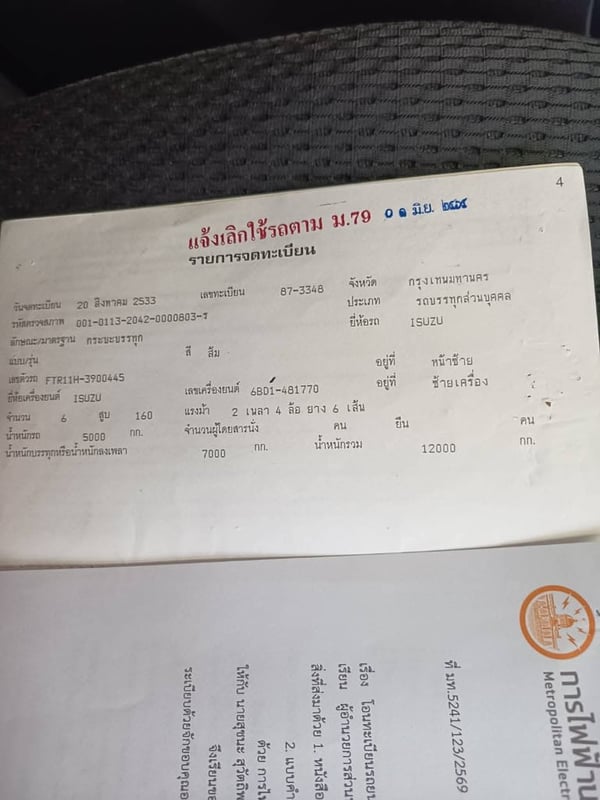 4
แจ้งเลิกใช้รถตาม ม.79 ๐๑ มิ.ย. ๒๕๖๙
รายการจดทะเบียน
วันจดทะเบียน 20 สิงหาคม 2533 เลขทะเบียน 87-3348 จังหวัด กรุงเทพมหานคร
รหัสตรวจสภาพ 001-0113-2042-0000803-ร ประเภท รถบรรทุกส่วนบุคคล
ลักษณะ/มาตรฐาน กระบะบรรทุก ยี่ห้อรถ ISUZU
แบบ/รุ่น สี ส้ม
เลขตัวรถ FTR11H-3900445 อยู่ที่ หน้าซ้าย
ยี่ห้อเครื่องยนต์ ISUZU เลขเครื่องยนต์ 6BD1-481770 อยู่ที่ ซ้ายเครื่อง
จำนวน 6 สูบ 160 แรงม้า 2 เพลา 4 ล้อ ยาง 6 เส้น
น้ำหนักรถ 5000 กก. จำนวนผู้โดยสารนั่ง คน ยืน คน
น้ำหนักบรรทุกหรือน้ำหนักลงเพลา 7000 กก. น้ำหนักรวม 12000 กก.
การไฟฟ้าน
Metropolitan Electr
ที่ มท.5241/123/2569
เรื่อง โอนทะเบียนรถยน
เรียน ผู้อำนวยการส่วน
สิ่งที่ส่งมาด้วย 1. หนังสือ
2. แบบคำ
ด้วย การไ
ให้กับ นายสุชนะ สุวัตถิพ
จึงเรียนขอ
ระเบียบด้วยจักขอบคุณอ